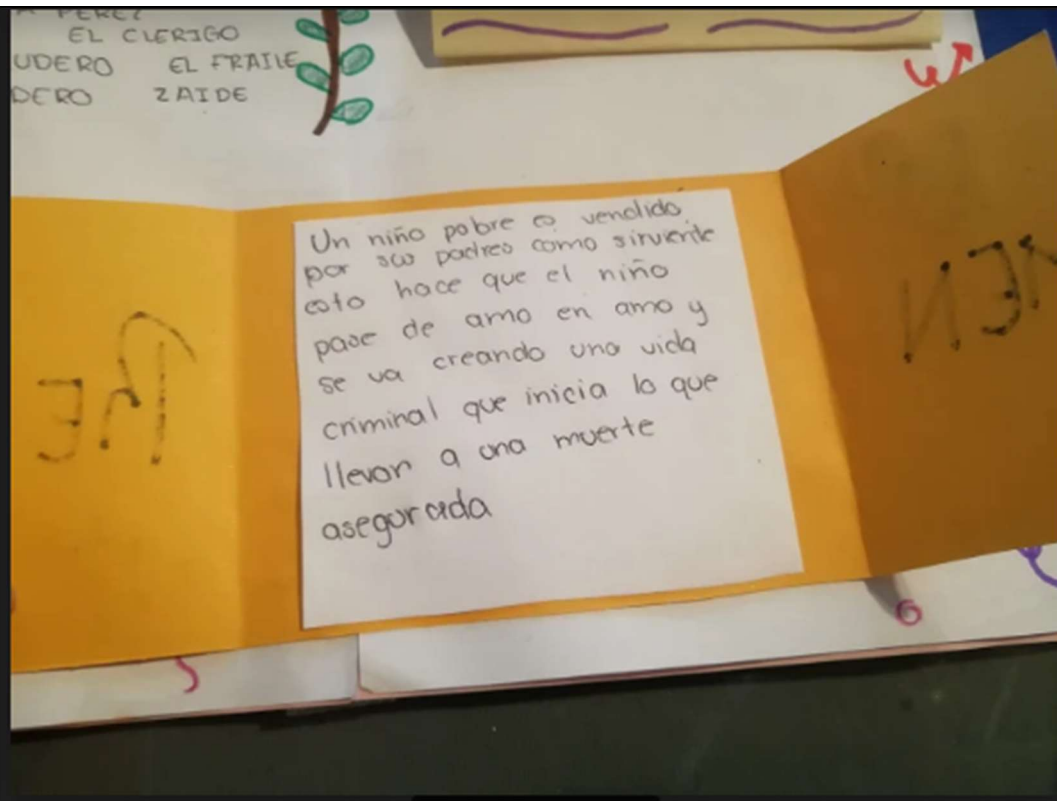 PEREZ
EL CLERIGO
UDERO EL FRAILE
DERO ZAIDE
Un niño pobre es vendido
por sus padres como sirviente
esto hace que el niño
pase de amo en amo y
se va creando una vida
criminal que inicia lo que
llevan a una muerte
asegurada